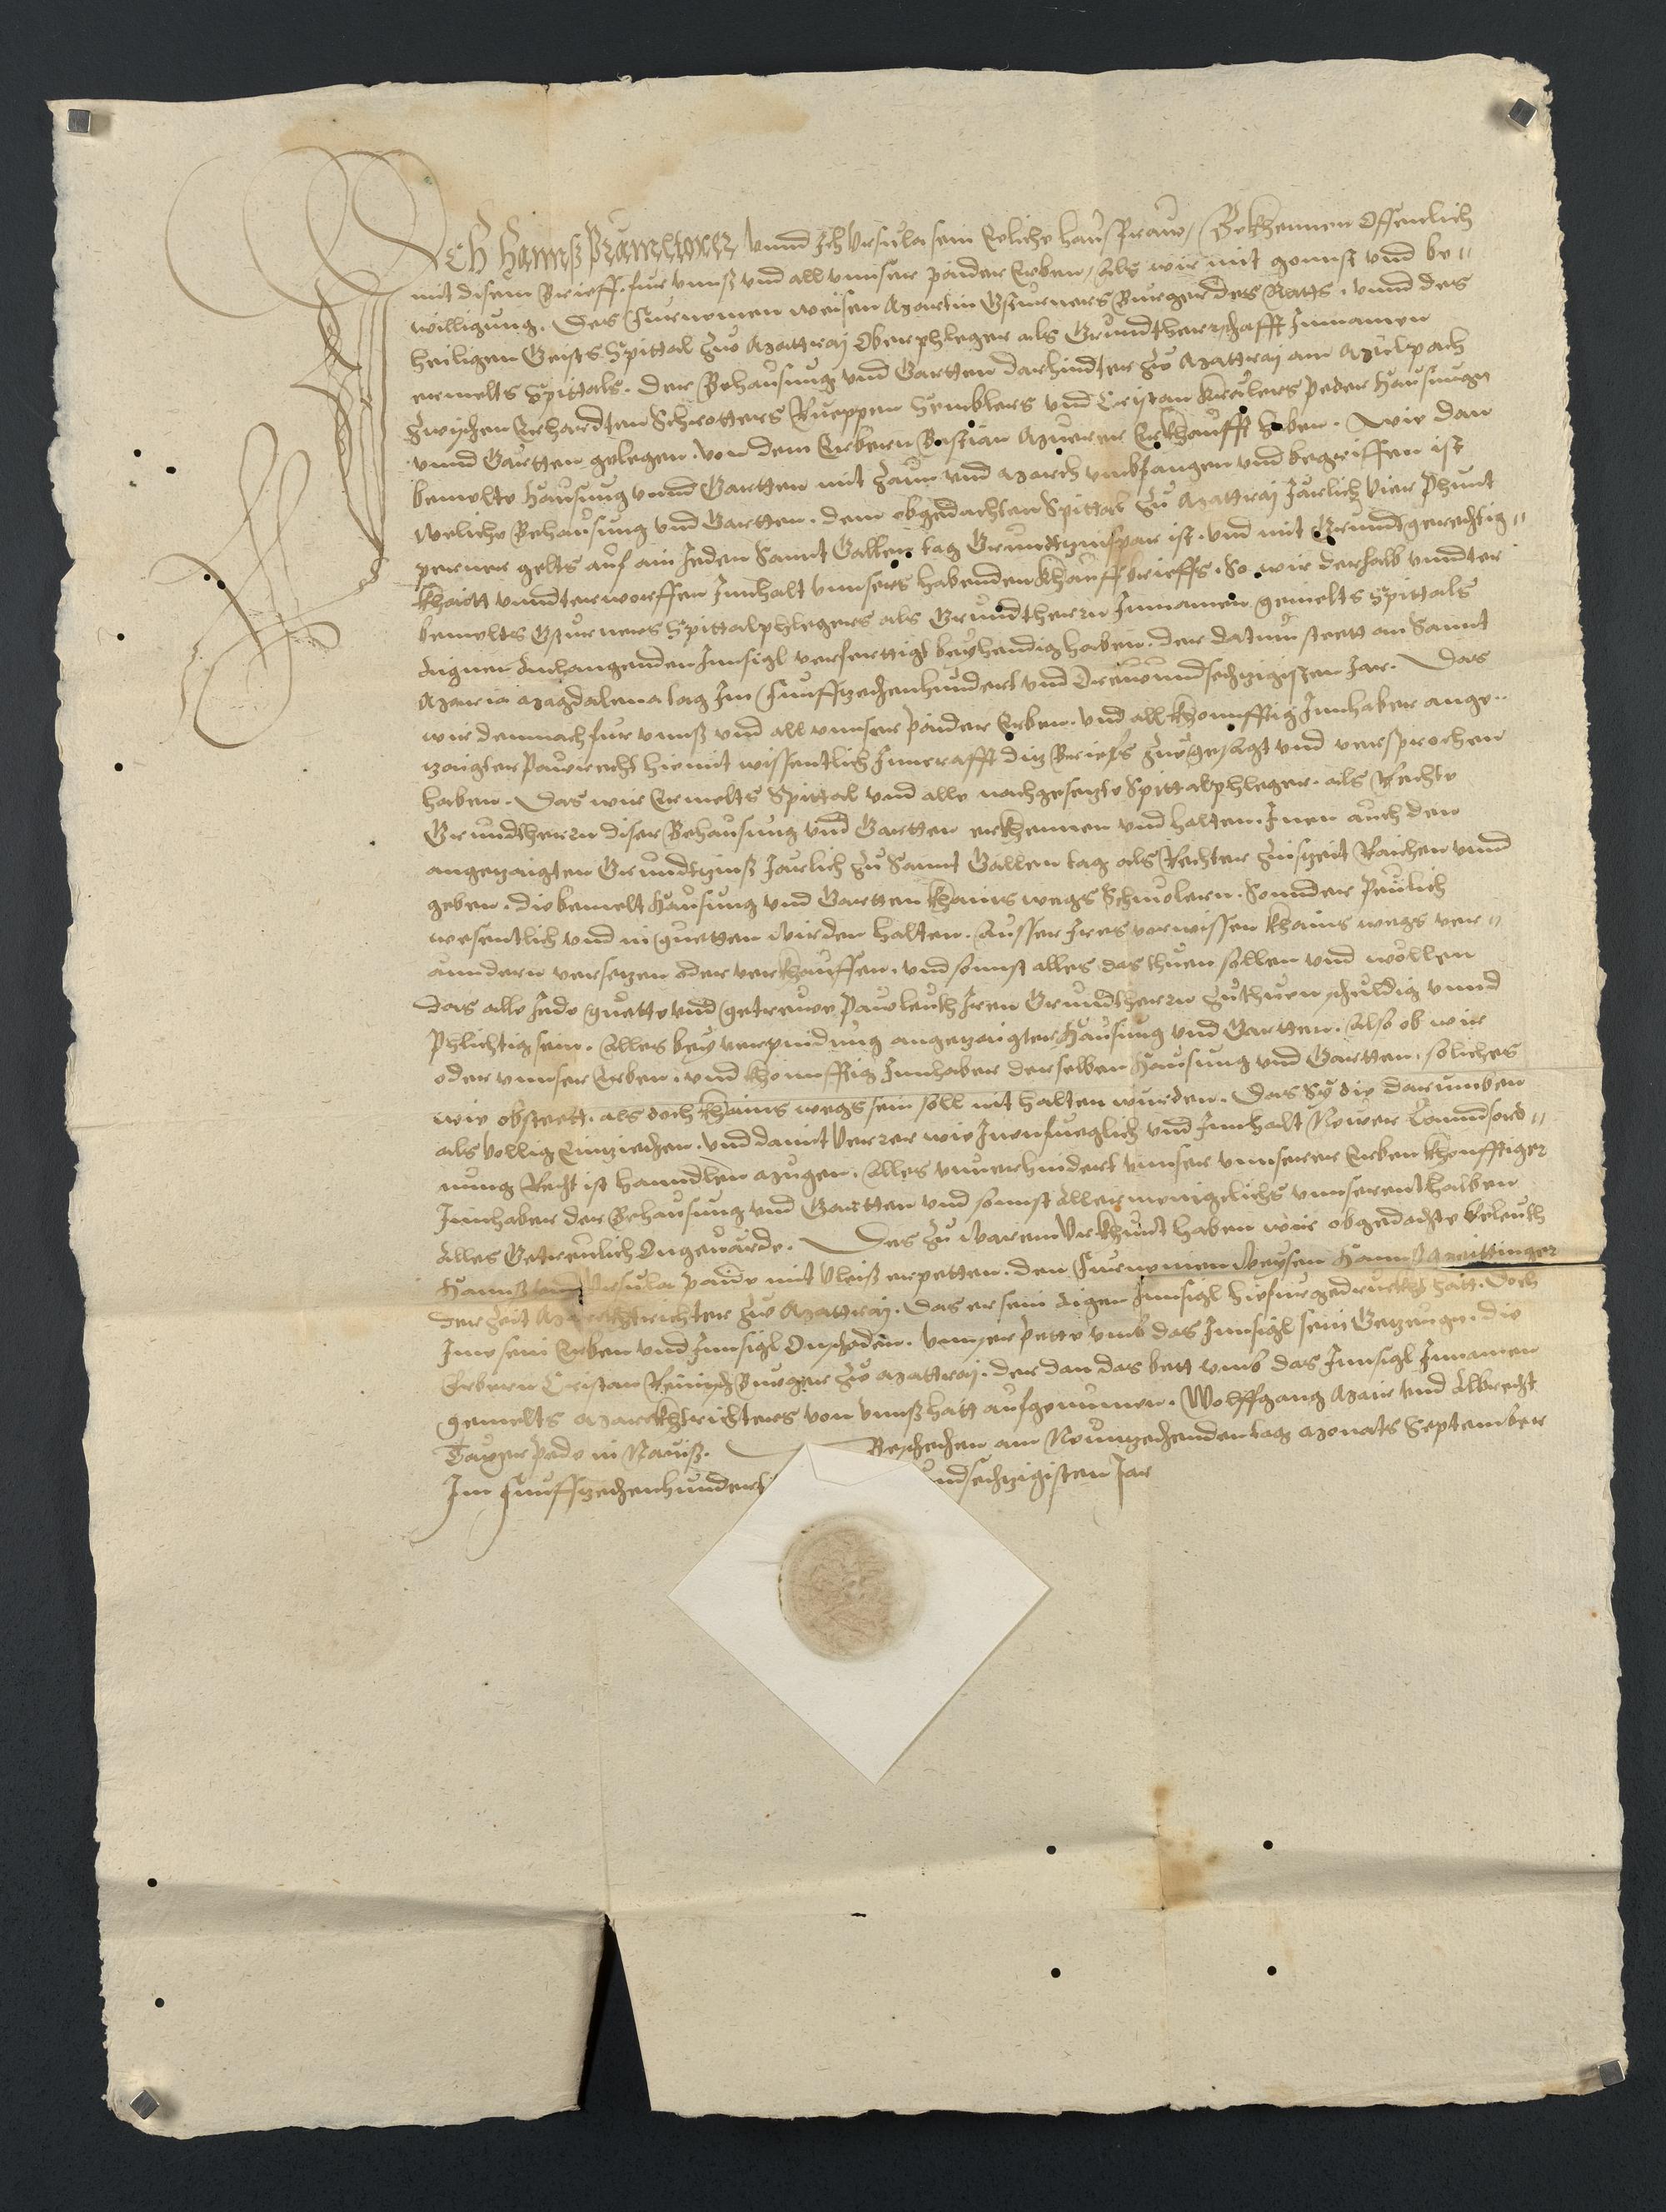 Ich Hannß Prameltorer vnnd Ich Vrsula sein Eeliche haußfraw, Bekhennen Offenlich
mit disem Brieff. fur vnnß vnd all vnnser paider Erben, Als wir mit gonnst vnd be=
willigung. Des Furnemen weisen Martin Gsturners Burger des Ratts. vnnd des
heiligen Geists Spittal zu Mattraj Oberphleger als Grundtherrschafft Innamen
ermelts Spittals. Der Behausung vnd Gartten darhindter zu Mattraj am Mülpach
zwischen Erhardten Schrotters Rueppen Hemblers vnd Cristan Krälers peder Hausungen
vnnd Gartten gelegen. von dem Erbern Bastian Murer Erkhaufft haben. Wie dan
bemelte Hausung vnnd Gartten mit Zaun vnd March vmbfangen vnd begriffen ist
Weliche Behausung vnd Gartten. dem obgedachten Spittal zu Mattraj Järlich Vier Phunt
perner gelts auf ain Jeden Sannt Gallen tag Grundtzinspar ist. vnd mit Grundtgerechtig=
khait vnndterworffen Innhalt vnnsers habenden Khauffbrieffs. So wir derhalb vnndter
bemelts Gsturners Spittalphlegers als Grundtherrn Innamen gemelts Spittals
Aignen Anhangenden Innsigl verferttigt beyhendig haben. der datum steet an Sannt
Maria Magdalena tag Im Funffzechenhundert vnd Drewundsechzigisten Jar. Das
wir demnach fur vnnß vnd all vnnser paider Erben. vnd all khonnfftig Innhaber ange=
zaigter Pawrecht hiemit wissentlich Inn crafft ditz Brieffs zuegesagt vnd versprochen
haben. Das wir Ermelts Spittal vnd alle nachgesetzte Spittalphleger. als Rechte
Grundtherrn diser Behausung vnd Gartten erkhennen vnd halten. Inen auch den
angezaigten Grundtzinß Järlich zu Sannt Gallen tag als Rechter Zinßzeit Raichen vnnd
geben. die bemelt Hausung vnd Gartten khains wegs Schmelern. Sonnder Peulich
wesentlich vnd in guetten wirden halten. Ausser Ires vorwissen khains wegs ver=
änndern versetzen oder verkhauffen. vnd sonnst alles das thuen sollen vnd wöllen
das alle Jede guette vnd getrewe Pawleuth Iren Grundtherrn zuthuen schuldig vnnd
Phlichtig sein. Alles bey verpindung angezaigter Hausung vnd Gartten. Also ob wir
oder vnnser Erben. vnd khonnfftig Innhaber derselben Hausung vnd Gartten. soliches
wie obsteett. als doch khains wegs sein soll nit halten wurden. Das Sy die darumben
als vollig Einziechen. vnd damit Verrer wie Inen fueglich vnd Innhalt Newer Lanndsord=
nung Recht ist hanndlen mugen. Alles vnuerhindert vnnser vnnserer Erben khonfftiger
Innhaber der Behausung vnd Gartten vnd sonnst Allermenigclichs vnnserenthalben
Alles Getreulich Ongeuärde. Des zu Warem Vrkhundt haben wir obgedachte Eeleuth
Hannß vnd Vrsula paide mit Vleiß erpetten. den Furnemen Weysen Hannß
der Zeit Marcktrichter zu Mattraj. Das er sein Aigen Innsigl hiefur gedruckht hatt. doch
Ime sein Erben vnd Innsigl Onschaden. vnnser pette vmb das Innsigl sein Getzeugn. die
Erbern Cristan Burger zu Mattraj. der dan das bett vmb das Innsigl Innamen
gemelts Marckhtrichters von vnnß hatt aufgenumen. Wolffgang Mair vnd Albrecht
Taxer pede in Nauiß. Beschechen am Neuntzechenden tag Monats September
Im Funffzechenhundert vndsechzigisten Jar